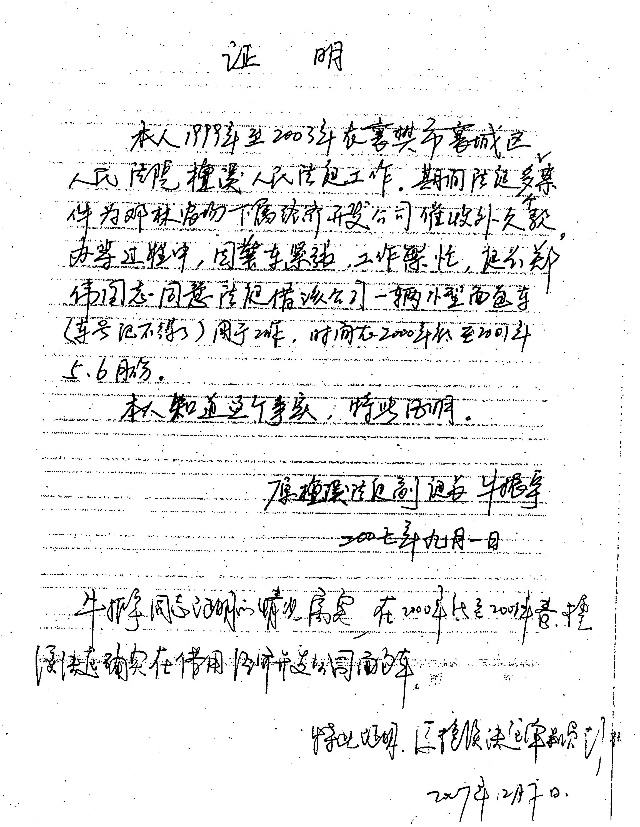 证 明
本人1999年至2003年在襄樊市襄城区
人民法院檀溪人民法庭工作。期间法庭多案
件为邓林农场下属经济开发公司催收外欠款。
办案过程中,因警车紧张,工作繁忙,庭长郑
伟同志同意法庭借该公司一辆小型面包车
(车号记不得了)用于工作,时间在2000年 至2001年
5.6月份。
本人知道这个事实,特此证明。
原檀溪法庭副庭长 牛振军
二00七年九月一日
牛振军同志证明的情况属实,在2000年 至2001年 檀
溪法庭确实在借用经济开发公司面包车。
特此证明. 原檀溪法庭审判员
2007年12月 日.